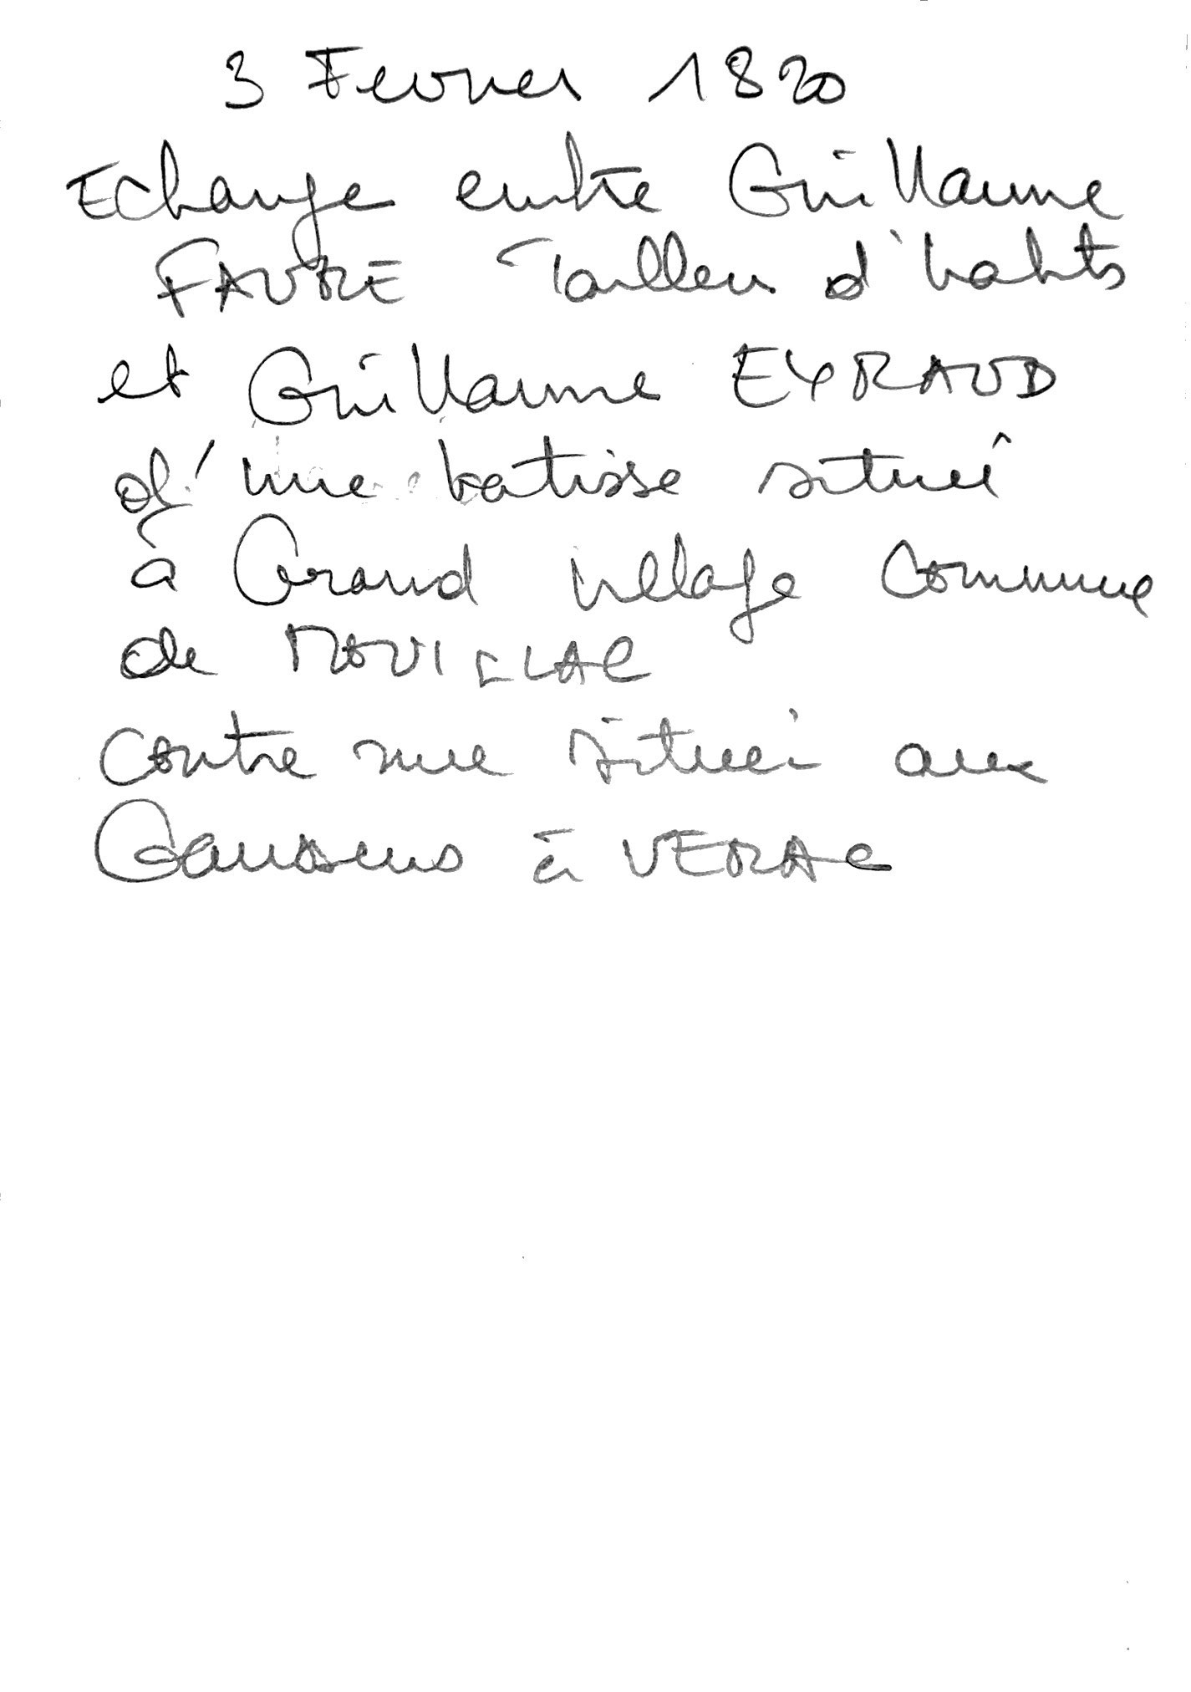 3 Fevrier 1820
Echange entre Guillaume
FAVRE Tailleur d'habits
et Guillaume EYRAUD
d'une batisse situé
à Grand village commune
de MOUILLAC
contre une situé aux
à VERAC